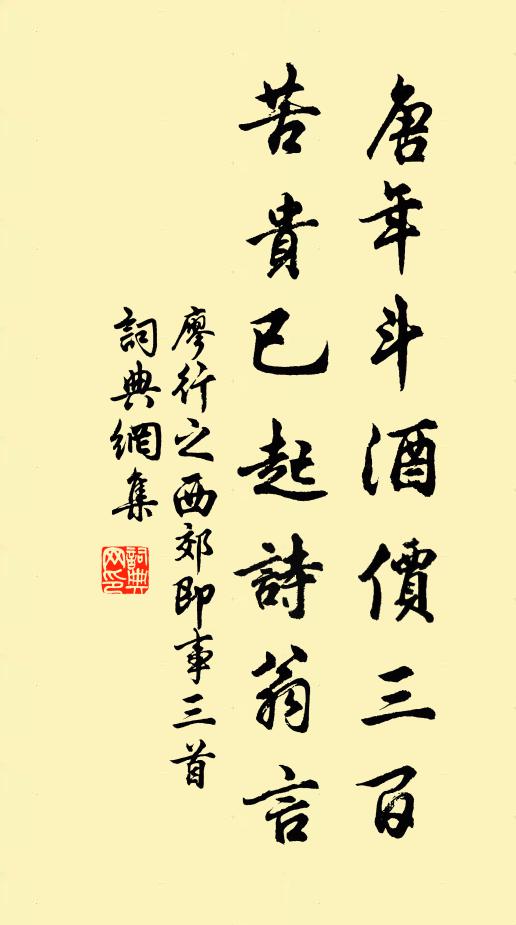 唐年斗酒價三百
苦貴已起詩翁言
廖行之西郊即事三首
詞典網集
詞典網印